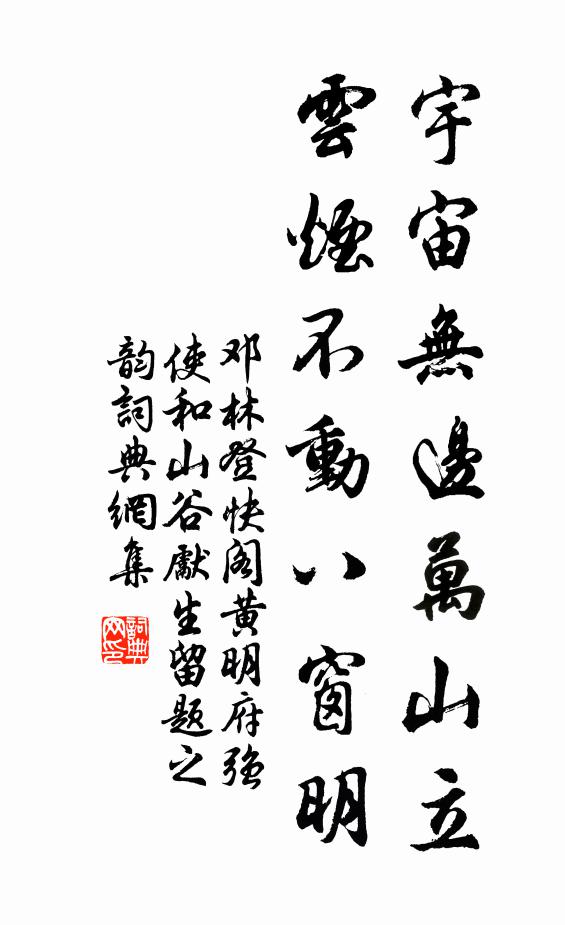 宇宙無邊萬山立
雲煙不動八窗明
邓林登快阁黄明府強
使和山谷獻生留題之
韵詞典網集
詞典
网印